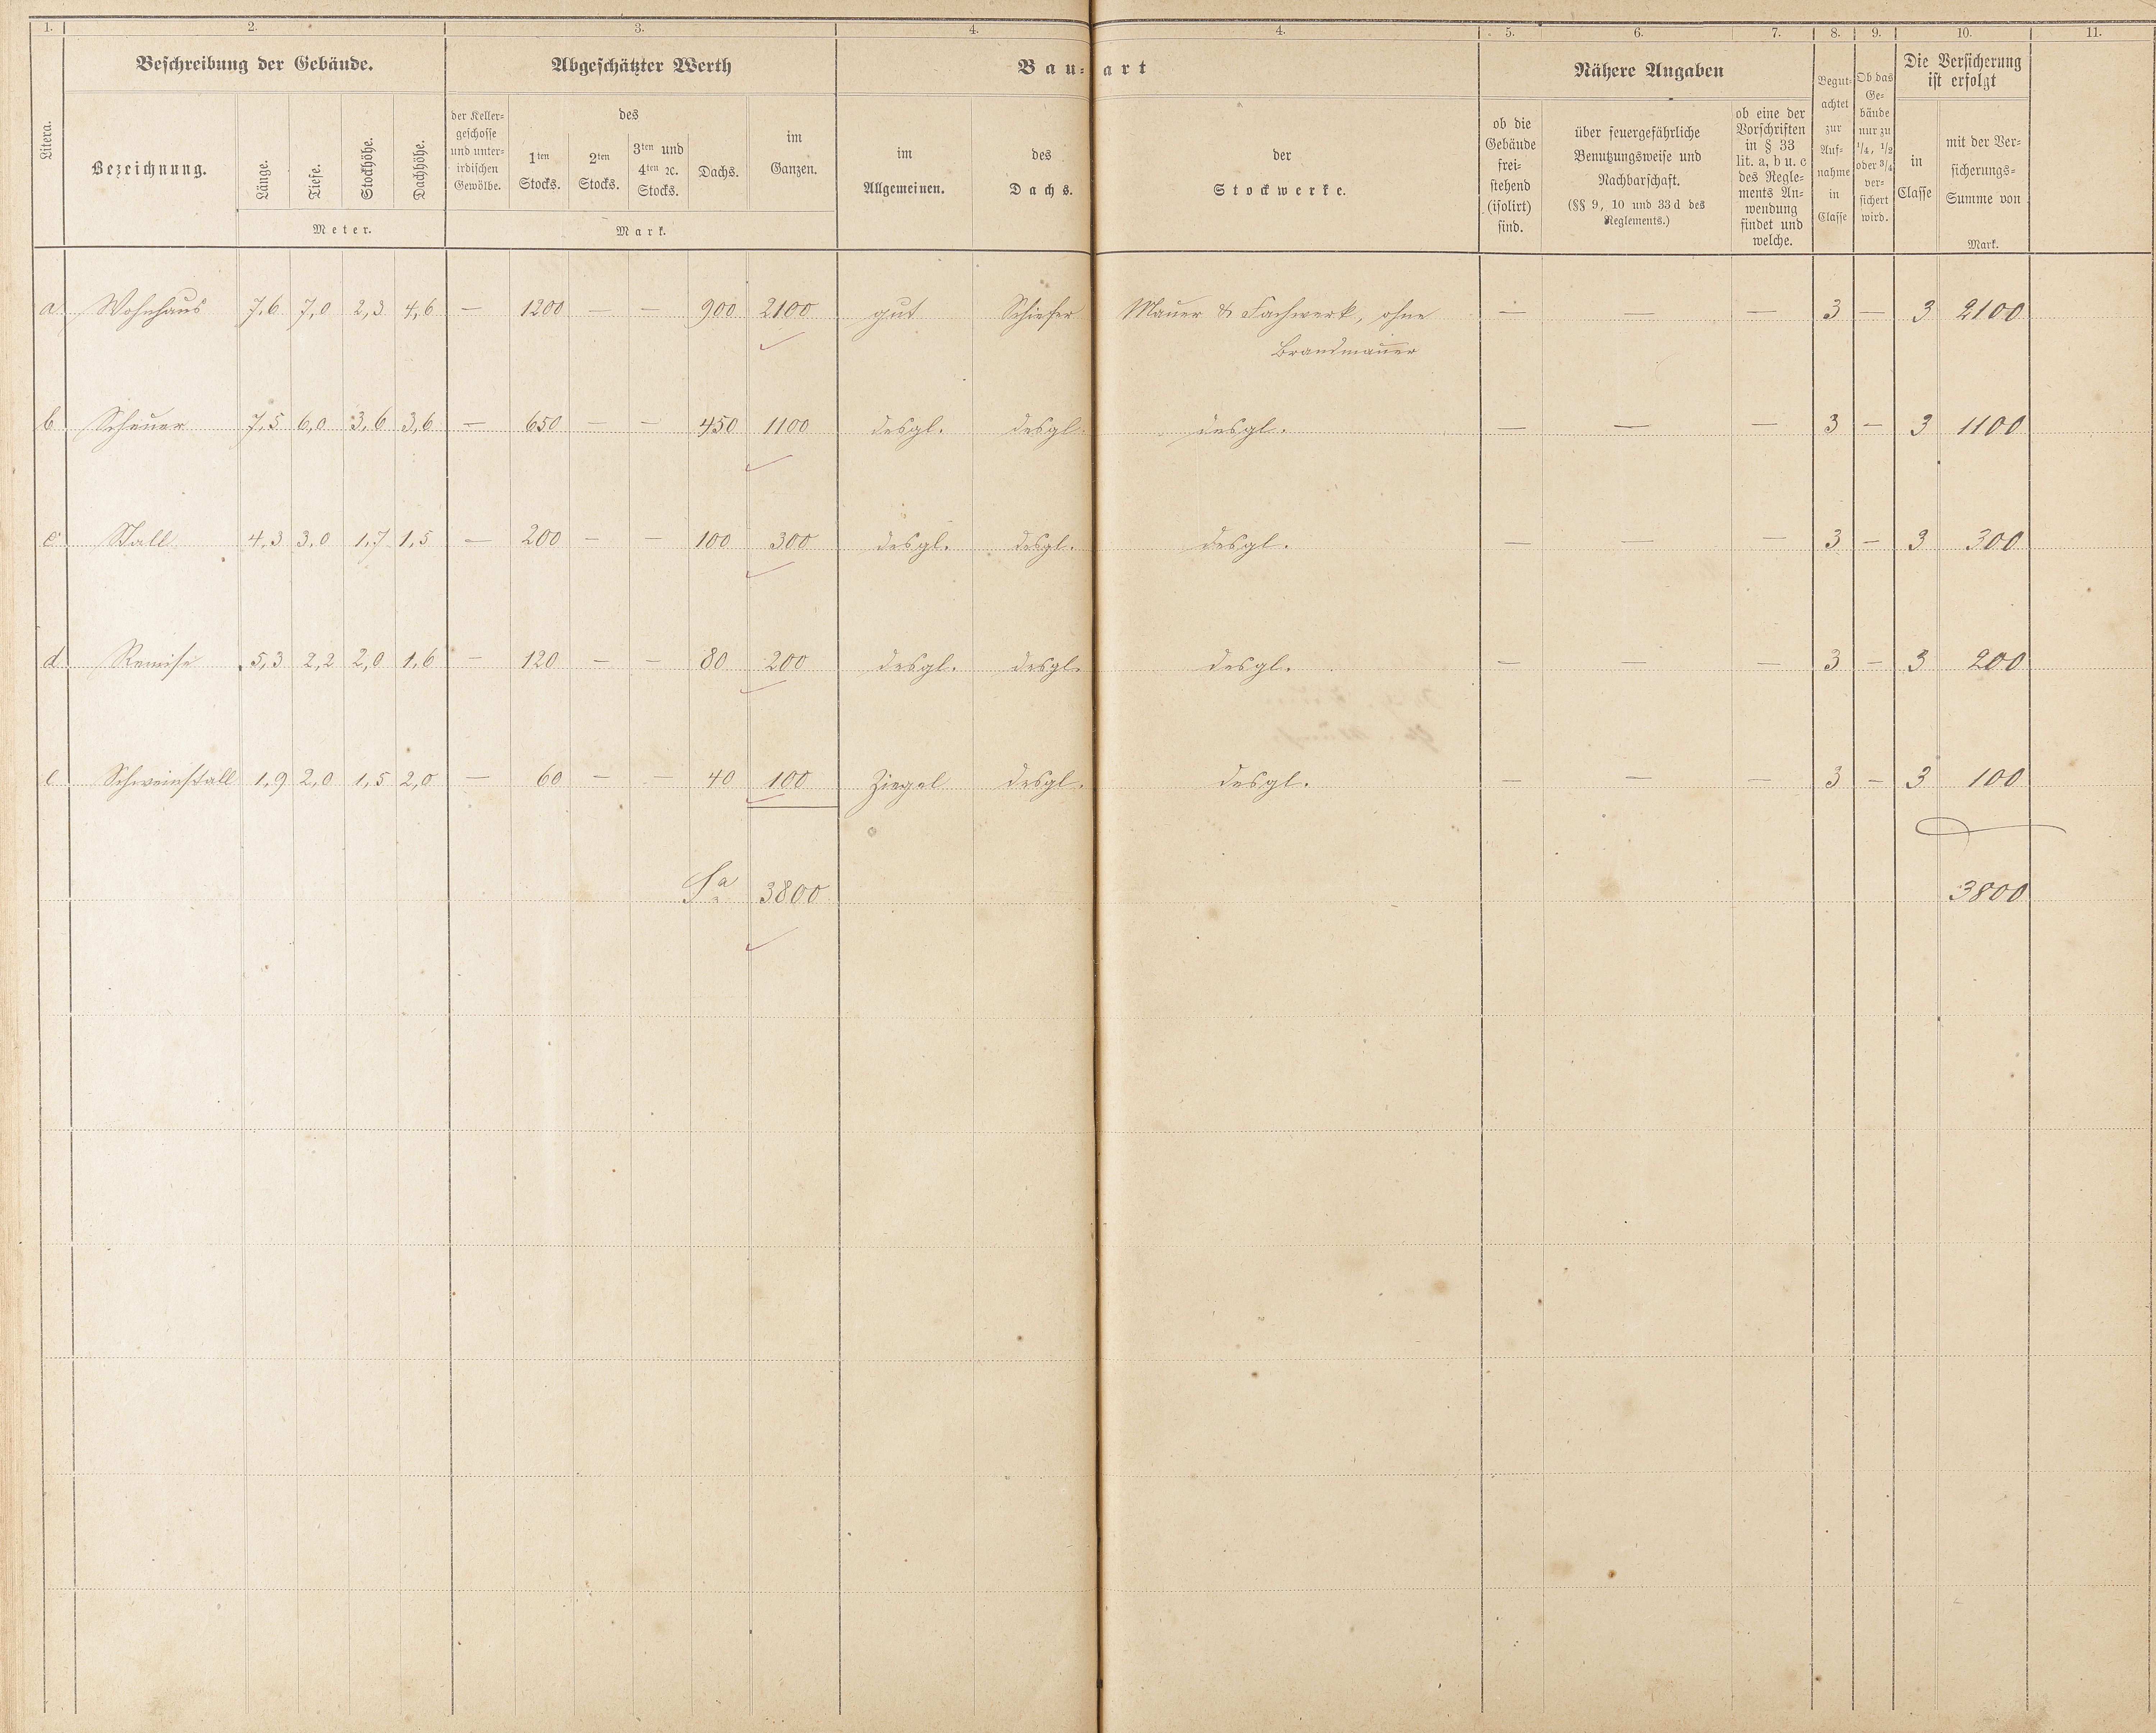 1. 2. 3. 4. 4. 5. 6. 7. 8. 9. 10. 11.
Litera.
Beschreibung der Gebäude.
Bezeichnung.
Länge.
Tiefe.
Stockhöhe.
Dachhöhe.
Meter.
Abgeschätzter Werth
der Keller-
geschosse
und unter-
irdischen
Gewölbe.
des
1ten
Stocks.
2ten
Stocks.
3ten und
4ten ꝛc.
Stocks.
Dachs.
im
Ganzen.
Mark.
Bau-art
im
Allgemeinen.
des
Dachs.
der
Stockwerke.
Nähere Angaben
ob die
Gebäude
frei-
stehend
(isolirt)
sind.
über feuergefährliche
Benutzungsweise und
Nachbarschaft.
(§§ 9, 10 und 33 d des
Reglements.)
ob eine der
Vorschriften
in § 33
lit. a, b u. c
des Regle-
ments An-
wendung
findet und
welche.
Begut-
achtet
zur
Auf-
nahme
in
Classe
Ob das
Ge-
bäude
nur zu
1/4, 1/2
oder 3/4
ver-
sichert
wird.
Die Versicherung
ist erfolgt
in
Classe
mit der Ver-
sicherungs-
Summe von
Mark.
a. Wohnhaus 7,6 7,0 2,3 4,6 — 1200 — — 900 2100 gut Schiefer Mauer & Fachwerk, ohne — — — 3 — 3 2100
Brandmauer
b. Scheuer 7,5 6,0 3,6 3,6 — 650 — — 450 1100 desgl. desgl. desgl. — — — 3 — 3 1100
c. Stall 4,3 3,0 1,7 1,5 — 200 — — 100 300 desgl. desgl. desgl. — — — 3 — 3 300
d. Remise 5,3 2,2 2,0 1,6 — 120 — — 80 200 desgl. desgl. desgl. — — — 3 — 3 200
e. Schweinstall 1,9 2,0 1,5 2,0 — 60 — — 40 100 Ziegel desgl. desgl. — — — 3 — 3 100
Sa. 3800 3800